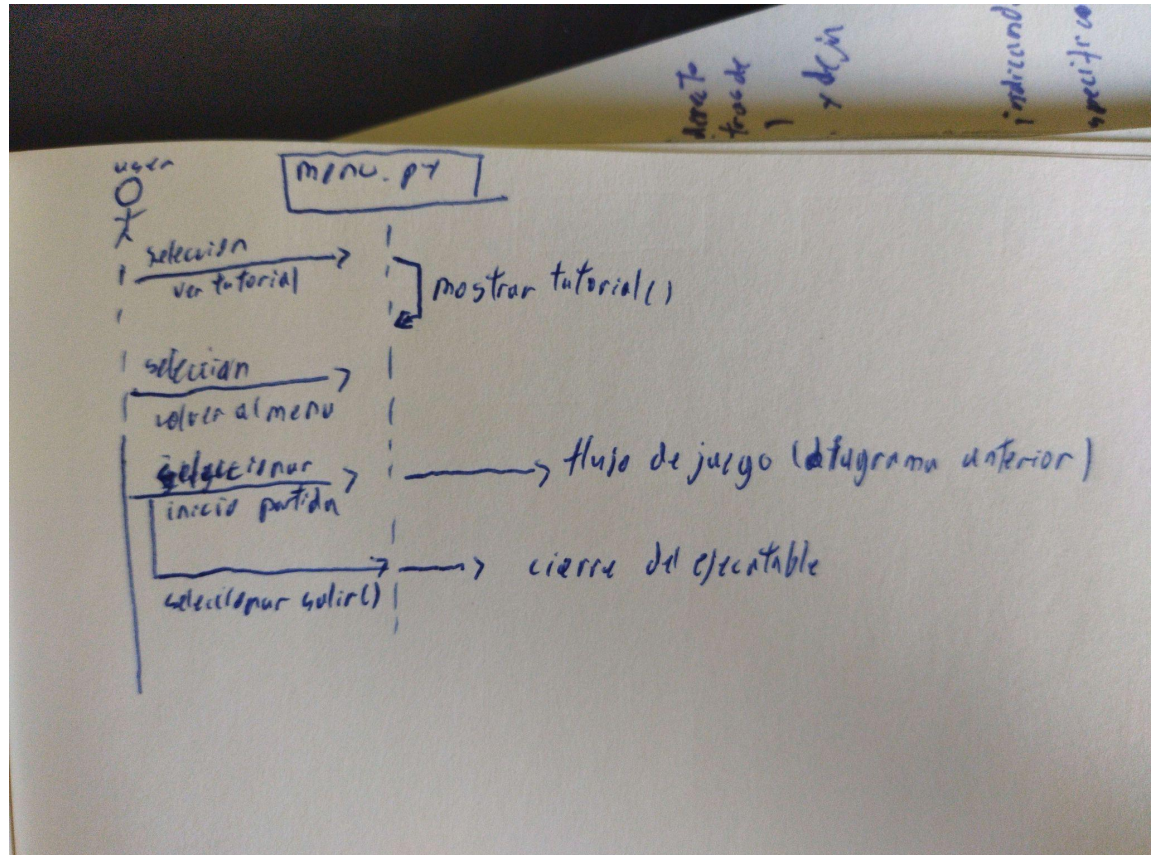 user
menu.py
seleccion
ver tutorial
mostrar tutorial()
seleccion
volver al menu
seleccionar
inicio partida
flujo de juego (diagrama anterior)
seleccionar salir()
cierre del ejecutable
y de jn
indicand